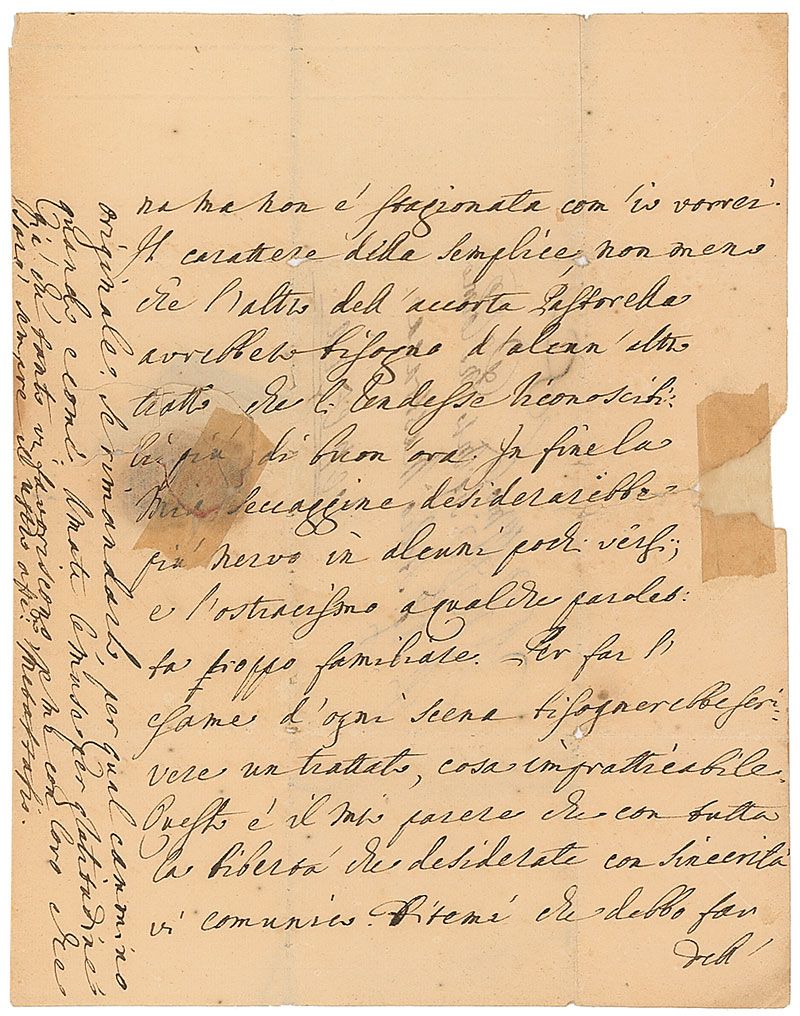 na ma non é stagionata com'io vorrei.
Il carattere della semplice, non meno
che l'altro dell'accorta Pastorella
avrebbero bisogno d'alcun'altro
tratto che li rendesse riconoscibi:
li più di buon ora. In fine la
mia seccaggine desiderarebbe
più nervo in alcuni pochi versi;
e l'ostracismo a qualche parolet:
ta troppo familiare. Per far l'
esame d'ogni scena bisognerebbe scri:
vere un trattato, cosa impratticabile.
Questo é il mio parere che con tutta
la libertà che desiderate con sincerità
vi comunico. Ditemi che debbo far
dell'
originale: se rimandarlo, per qual camino
quando e come. Amate le muse per gratitudine
già che tanto vi favoriscono, e me con loro che
sarò sempre il vostro Metastasio.